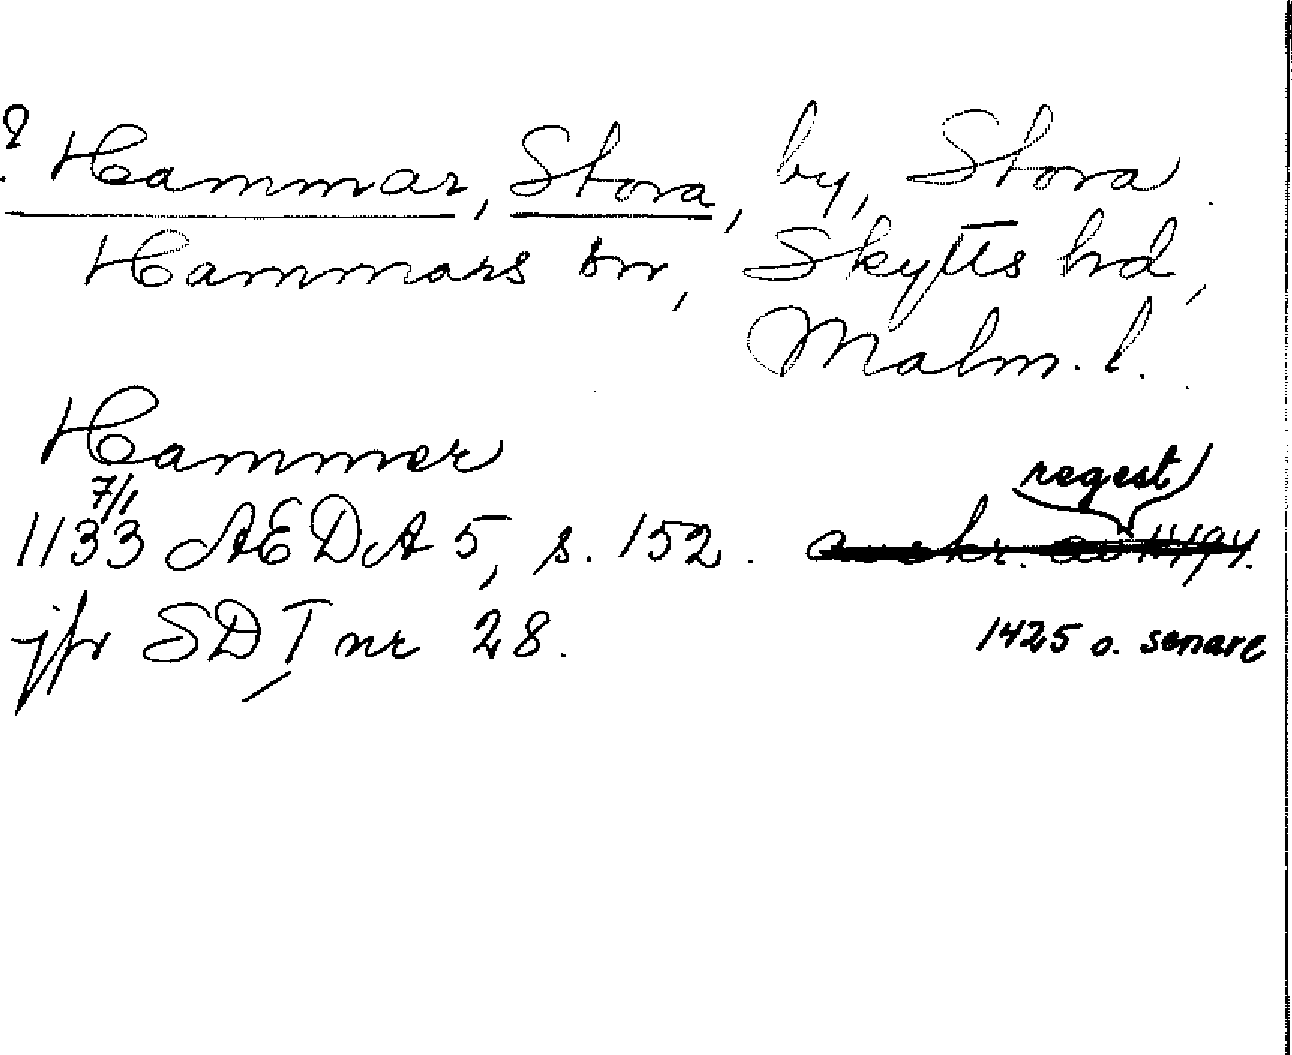 ? Hammar, Stora, by, Stora
Hammars sn, Skytts hd,
Malm. l.
Hammer
regest
1133 7/1 AEDA 5, s. 152. avskr. av 1494.
jfr SD I nr 28. 1425 o. senare